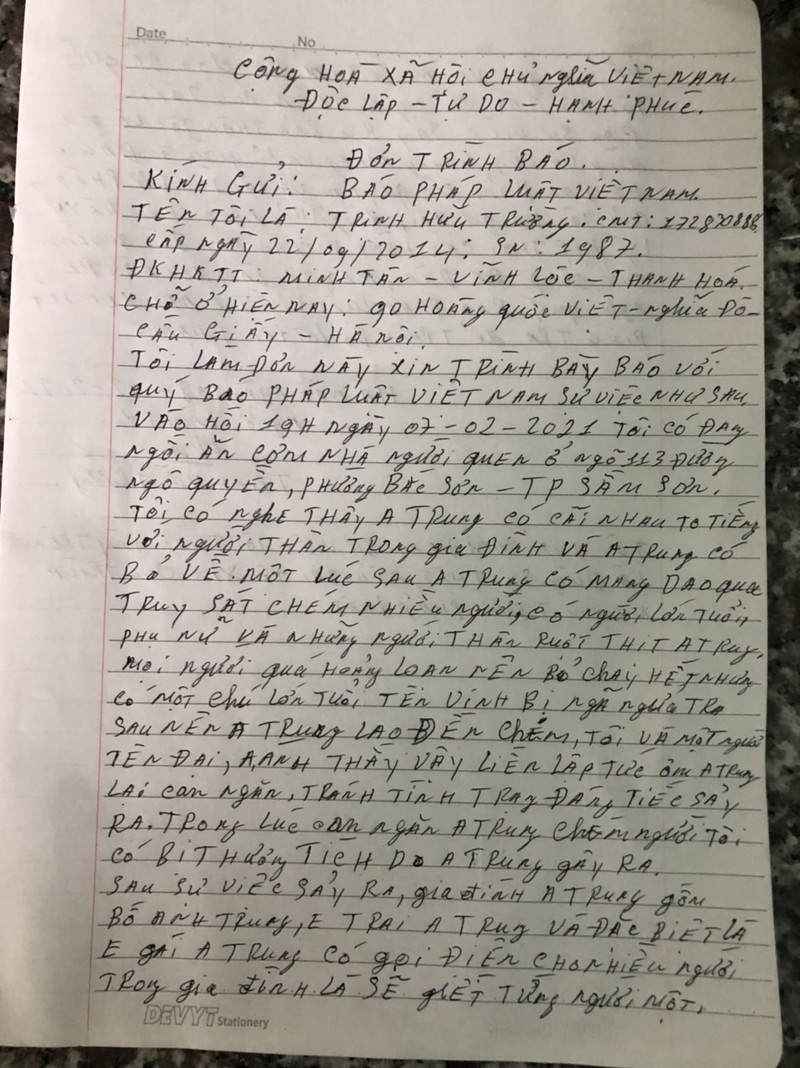 Date
No
CỘNG HOÀ XÃ HỘI CHỦ nghĩa VIỆT NAM.
ĐỘC LẬP - TỰ DO - HẠNH PHÚC.
ĐƠN TRÌNH BÁO.
KÍNH GỬI: BÁO PHÁP LUẬT VIỆT NAM.
TÊN TÔI LÀ: TRỊNH HỮU TRƯỜNG. CMT: 172830888
CẤP NGÀY 22/09/2014: SN: 1987.
ĐKHKTT: MINH TÂN - VĨNH LỘC - THANH HOÁ.
CHỖ Ở HIỆN NAY: 90 HOÀNG QUỐC VIỆT - nghĩa ĐÔ -
CẦU GIẤY - HÀ NỘI.
TÔI LÀM ĐƠN NÀY XIN TRÌNH BÀY BÁO VỚI
QUÝ BÁO PHÁP LUẬT VIỆT NAM SỰ VIỆC NHƯ SAU.
VÀO HỒI 19H NGÀY 07-02-2021 TÔI CÓ ĐANG
NGỒI ĂN CƠM NHÀ người quen ở ngõ 113 ĐƯỜNG
NGÔ QUYỀN, PHƯỜNG BẮC SƠN - TP SẦM SƠN.
TÔI CÓ NGHE THẤY A TRUNG CÓ CÃI NHAU TO TIẾNG
VỚI người THÂN TRONG gia ĐÌNH VÀ A TRUNG CÓ
BỎ VỀ. MỘT LÚC SAU A TRUNG CÓ MANG DAO qua
TRUY SÁT CHÉM NHIỀU người, có người lớn TUỔI,
PHỤ NỮ VÀ NHỮNG người THÂN RUỘT THỊT A TRUNG,
MỌI người quá HOẢNG LOẠN NÊN BỎ CHẠY HẾT, NHƯNG
CÓ MỘT CHÚ LỚN TUỔI TÊN VINH BỊ NGÃ NGỬA TRA
SAU NÊN A TRUNG LAO ĐẾN CHÉM, TÔI VÀ MỘT người
TÊN ĐẠI, A ANH THẤY VẬY LIỀN LẬP TỨC ÔM A TRUNG
LẠI CAN NGĂN, TRÁNH TÌNH TRẠNG ĐÁNG TIẾC SẢY
RA. TRONG LÚC CAN NGĂN A TRUNG CHÉM người TÔI
CÓ BỊ THƯƠNG TÍCH DO A TRUNG GÂY RA.
SAU SỰ VIỆC SẢY RA, gia đình A TRUNG gồm
BỐ ANH TRUNG, E TRAI A TRUNG VÀ ĐẶC BIỆT LÀ
E GÁI A TRUNG CÓ gọi ĐIỆN CHO NHIỀU người
TRONG gia ĐÌNH LÀ SẼ GIẾT TỪNG người MỘT,
DEVYT Stationery